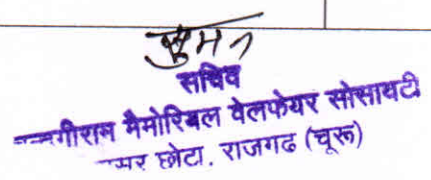 सुमन
सचिव
गीराम मैमोरियल वेलफेयर सोसायटी
सर छोटा. राजगढ (चूरू)